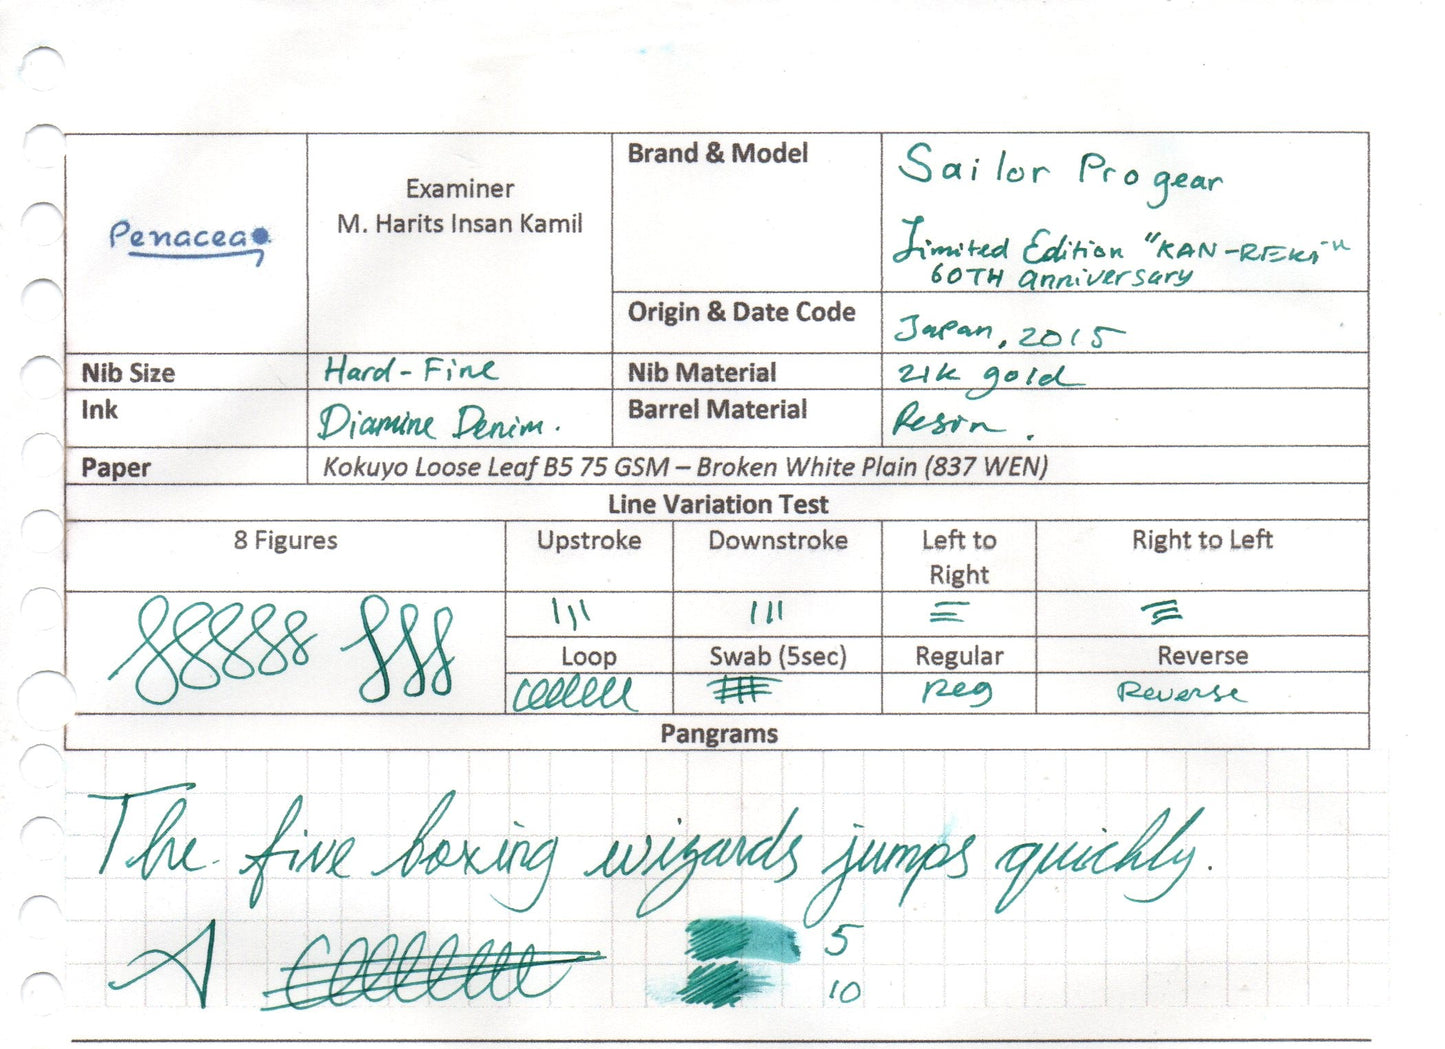 Penacea
Examiner
M. Harits Insan Kamil
Brand & Model
Sailor Progear
Limited Edition "KAN-REKI"
60TH anniversary
Origin & Date Code
Japan, 2015
Nib Size
Hard-Fine
Nib Material
21k gold
Ink
Diamine Denim.
Barrel Material
Resin.
Paper
Kokuyo Loose Leaf B5 75 GSM – Broken White Plain (837 WEN)
Line Variation Test
8 Figures
Upstroke
Downstroke
Left to
Right
Right to Left
Loop
Swab (5sec)
Regular
Reverse
Reg
Reverse
Pangrams
The five boxing wizards jumps quickly.
5
10